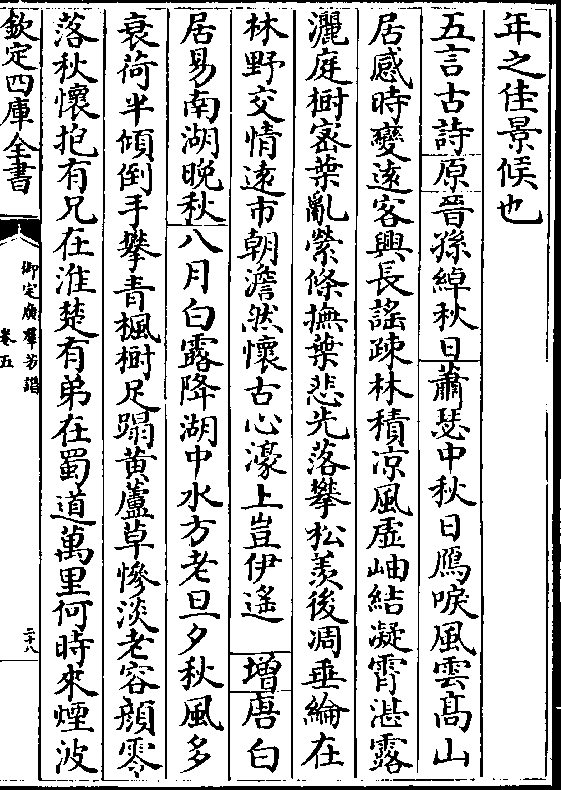 年之佳景候也
五言古詩原晉孫綽秋日蕭瑟中秋日鴈唳風雲高山
居感時變遠客興長謡疎林積凉風虚岫結凝霄湛露
灑庭樹宻葉亂縈條撫葉悲光落攀松羨後凋垂綸在
林野交情遠市朝澹然懷古心濠上豈伊遙 增唐白
居易南湖晩秋八月白露降湖中水方老旦夕秋風多
衰荷半傾倒手攀青楓樹足蹋黄蘆草慘淡老容顔零
落秋懷抱有兄在淮楚有弟在蜀道萬里何時來煙波
欽定四庫全書
御定廣羣芳譜
卷五
二十八